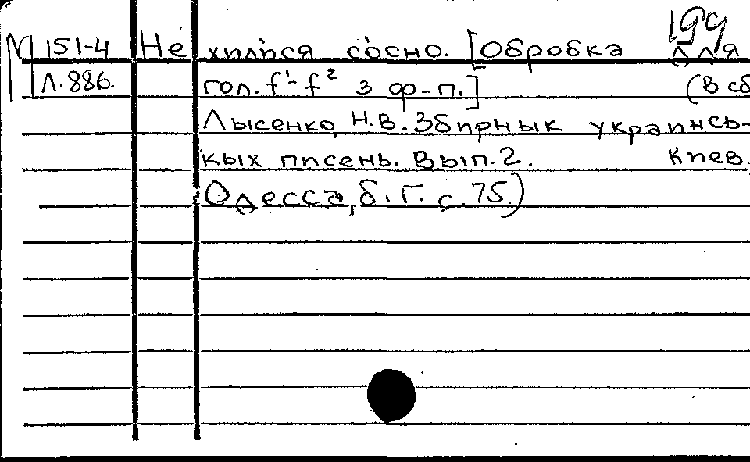 199
М 151-4 Не хилися сосно. [Обробка для
Л.886. гол. f¹-f² з ф-п.] (В сб
Лысенко, Н.В. Збирнык украинсь-
кых писень. Вып.2. Киев,
Одесса, б.г. с.75.)